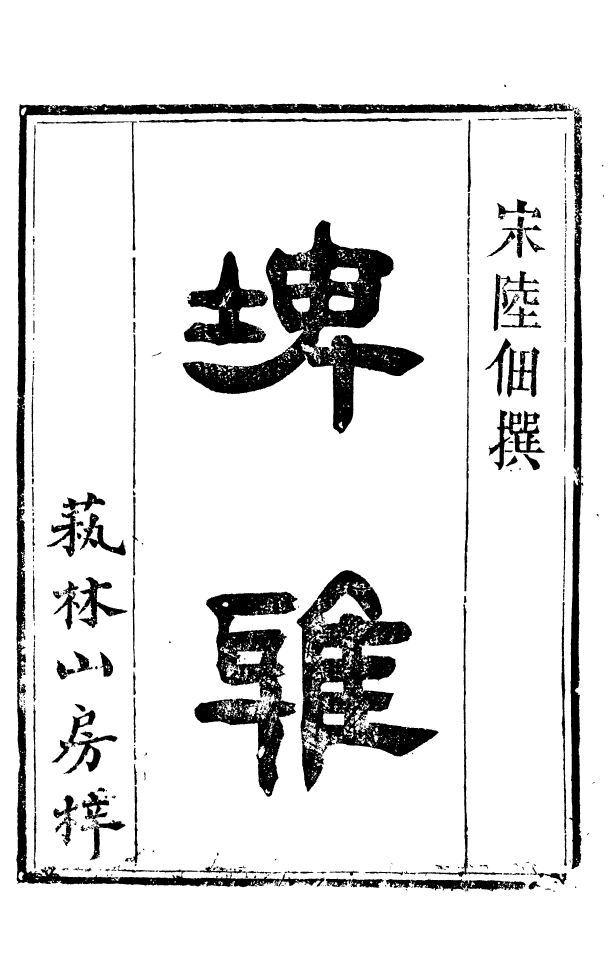 宋陸佃撰
埤雅
蓺林山房梓